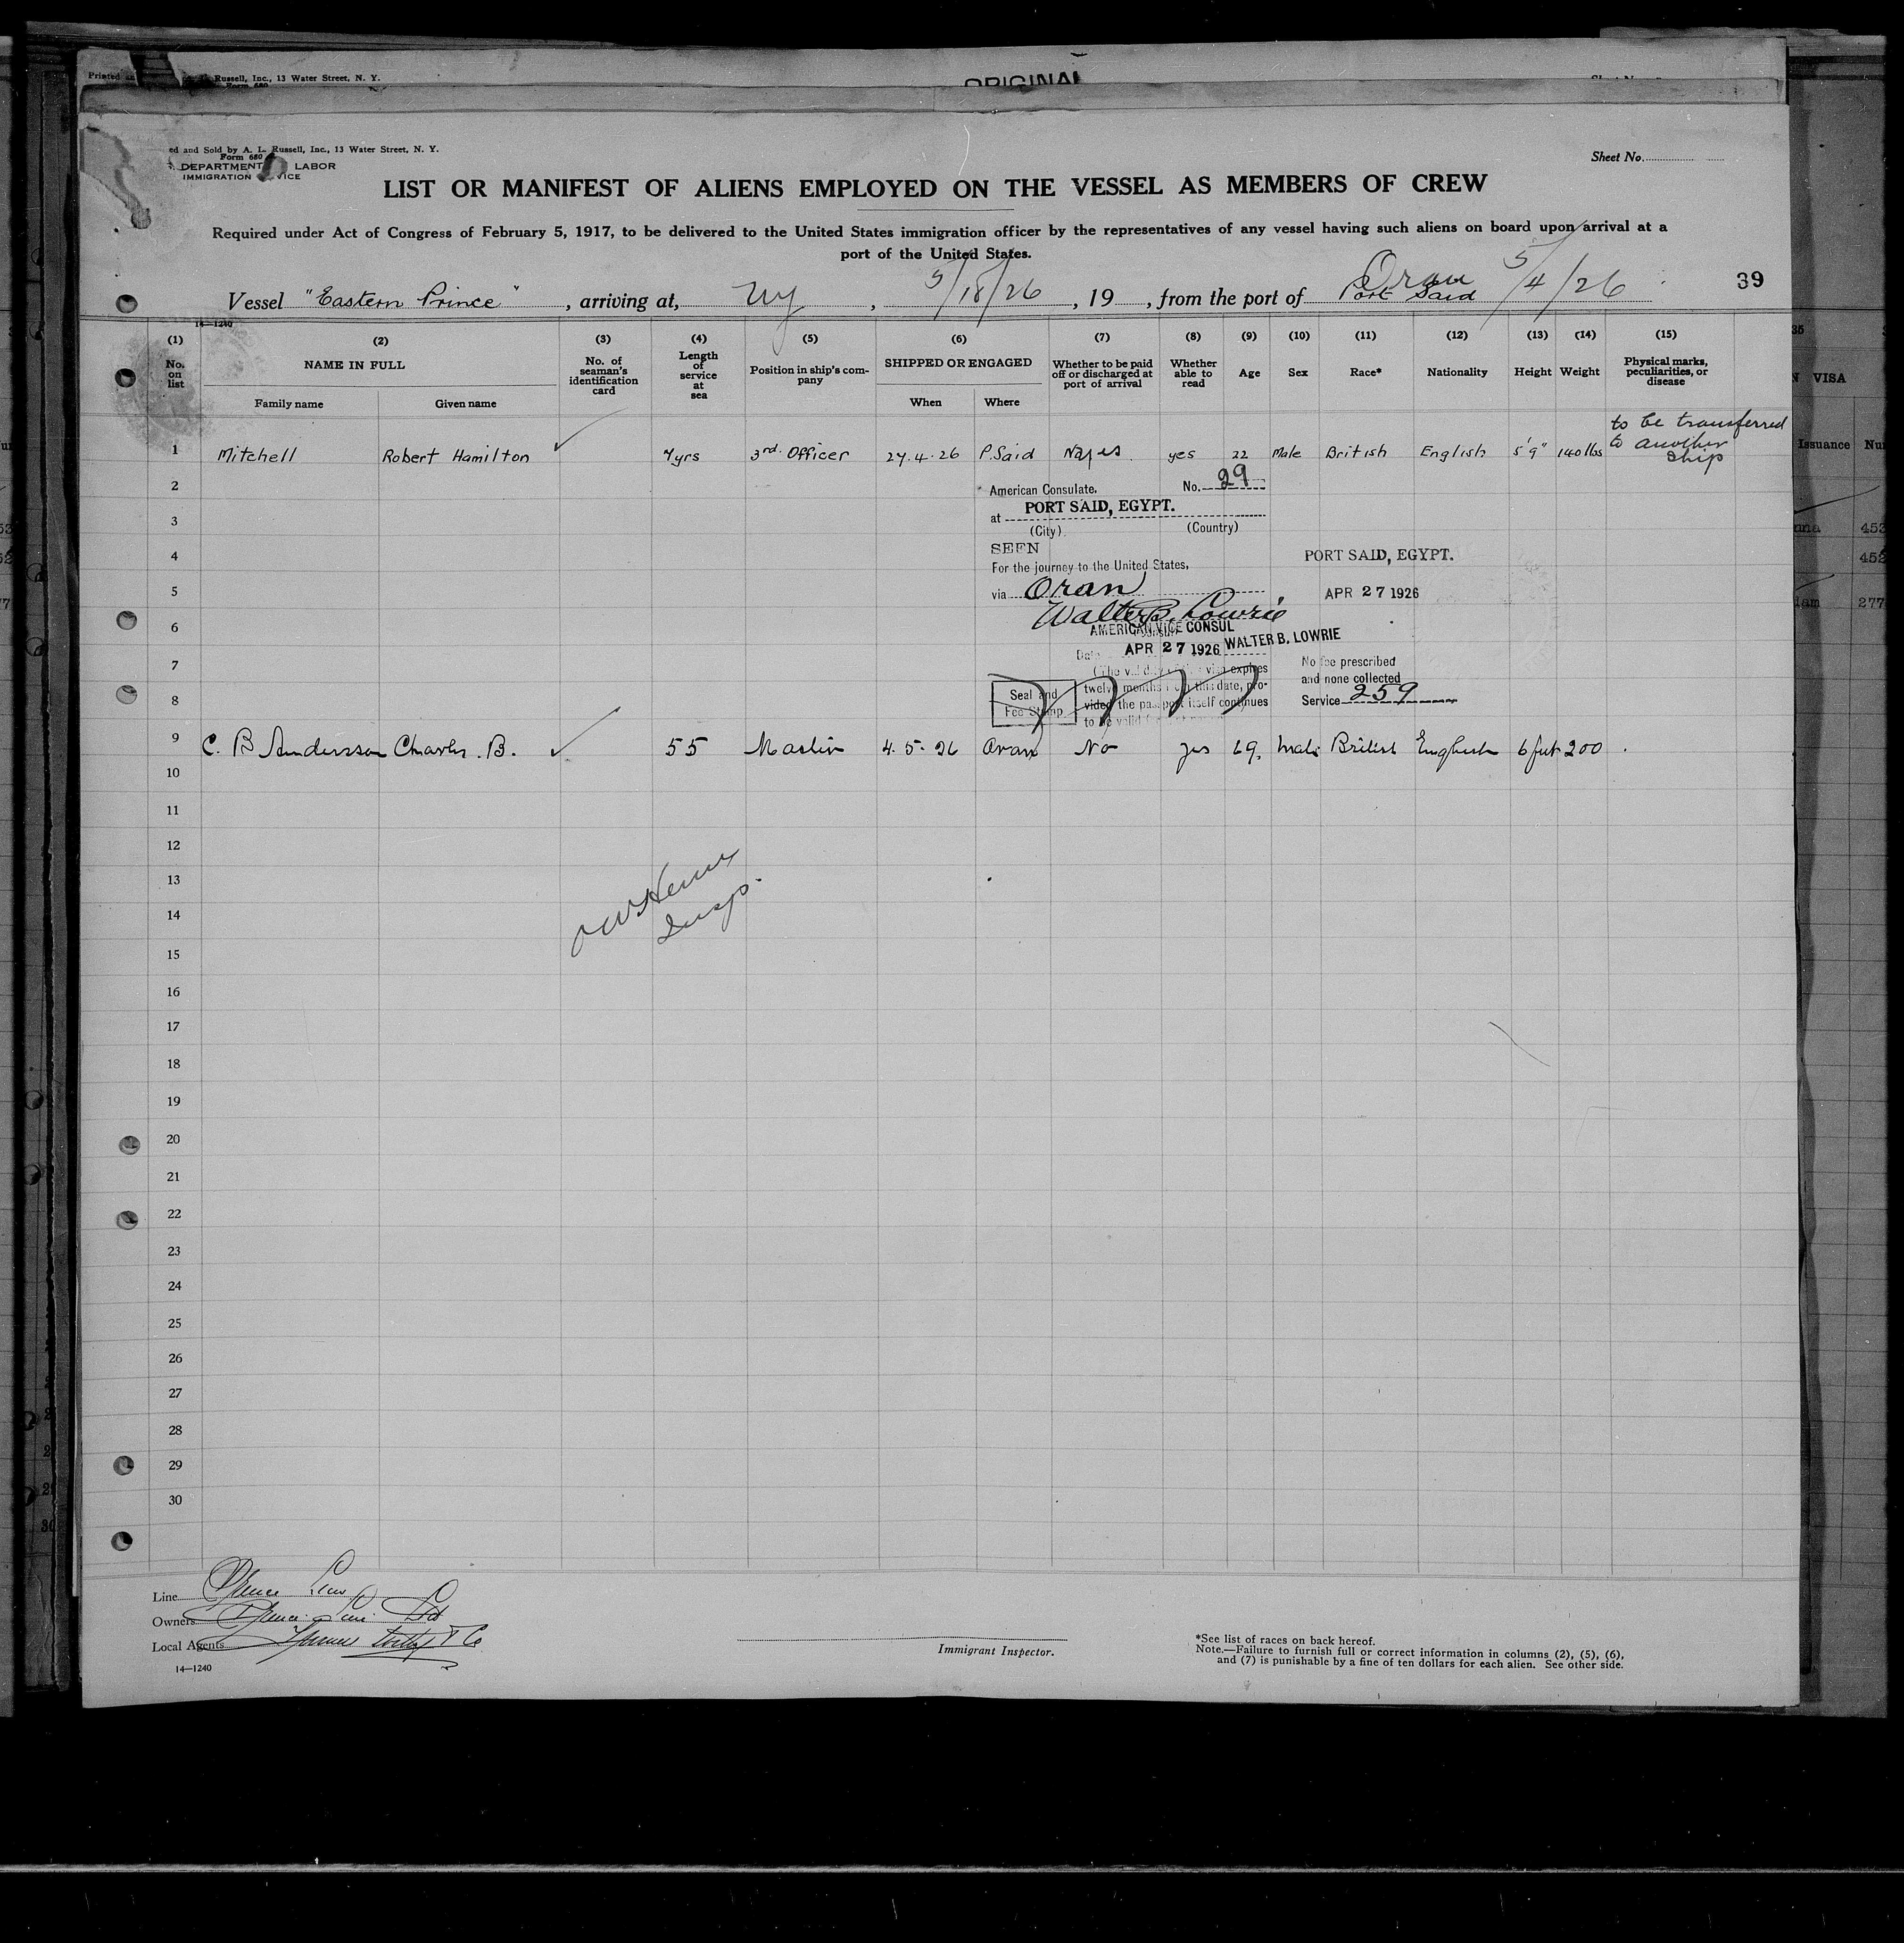 Russell, Inc., 13 Water Street, N. Y.
ORIGINAL
ed and Sold by A. L. Russell, Inc., 13 Water Street, N. Y.
Form 680
DEPARTMENT LABOR
IMMIGRATION
Sheet No.
LIST OR MANIFEST OF ALIENS EMPLOYED ON THE VESSEL AS MEMBERS OF CREW
Required under Act of Congress of February 5, 1917, to be delivered to the United States immigration officer by the representatives of any vessel having such aliens on board upon arrival at a
port of the United States.
Vessel "Eastern Prince", arriving at, NY, 5/18/26, 19, from the port of Port Said Oran 5/4/26
39
14—1240
(1) (2) (3) (4) (5) (6) (7) (8) (9) (10) (11) (12) (13) (14) (15)
No. on list
NAME IN FULL
Family name
Given name
No. of seaman's identification card
Length of service at sea
Position in ship's company
SHIPPED OR ENGAGED
When
Where
Whether to be paid off or discharged at port of arrival
Whether able to read
Age
Sex
Race*
Nationality
Height
Weight
Physical marks, peculiarities, or disease
1 Mitchell Robert Hamilton 7yrs 3rd. Officer 27.4.26 P.Said yes 22 Male British English 5'9" 140 lbs to be transferred to another ship
2
3
4
5
6
7
8
American Consulate. No. 29
at PORT SAID, EGYPT.
(City) (Country)
SEEN
For the journey to the United States,
via Oran
Walter B. Lowrie
AMERICAN VICE CONSUL
APR 27 1926 WALTER B. LOWRIE
PORT SAID, EGYPT.
APR 27 1926
(The validity of this visa expires
twelve months from this date, pro-
vided the passport itself continues
to be valid
Seal and
Fee Stamp
No fee prescribed
and none collected
Service 259
9 C. B Andersson Charles. B. 55 Master 4.5.26 Oran No yes 69. male British English 6 feet 200
10
11
12
13
14
Insp.
15
16
17
18
19
20
21
22
23
24
25
26
27
28
29
30
Line Prince Line
Owners Prince Line Ltd
Local Agents Furness Withy & Co
14—1240
Immigrant Inspector.
*See list of races on back hereof.
Note.—Failure to furnish full or correct information in columns (2), (5), (6),
and (7) is punishable by a fine of ten dollars for each alien. See other side.
VISA
Issuance
453
452
277